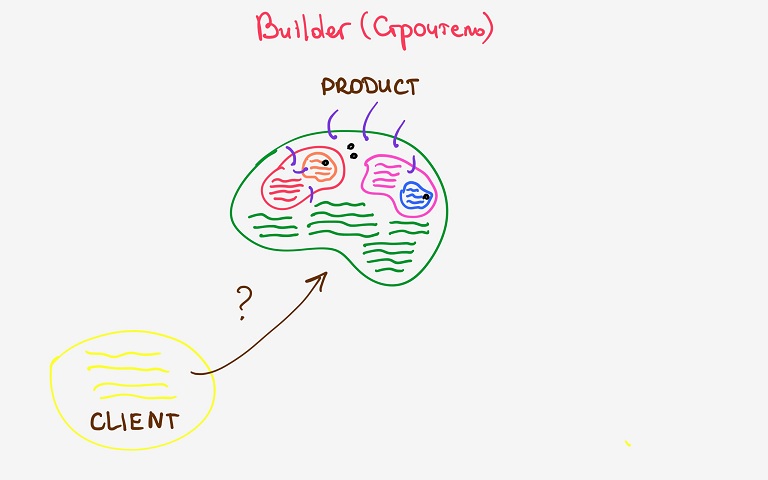 Builder (Строитель)
PRODUCT
?
CLIENT